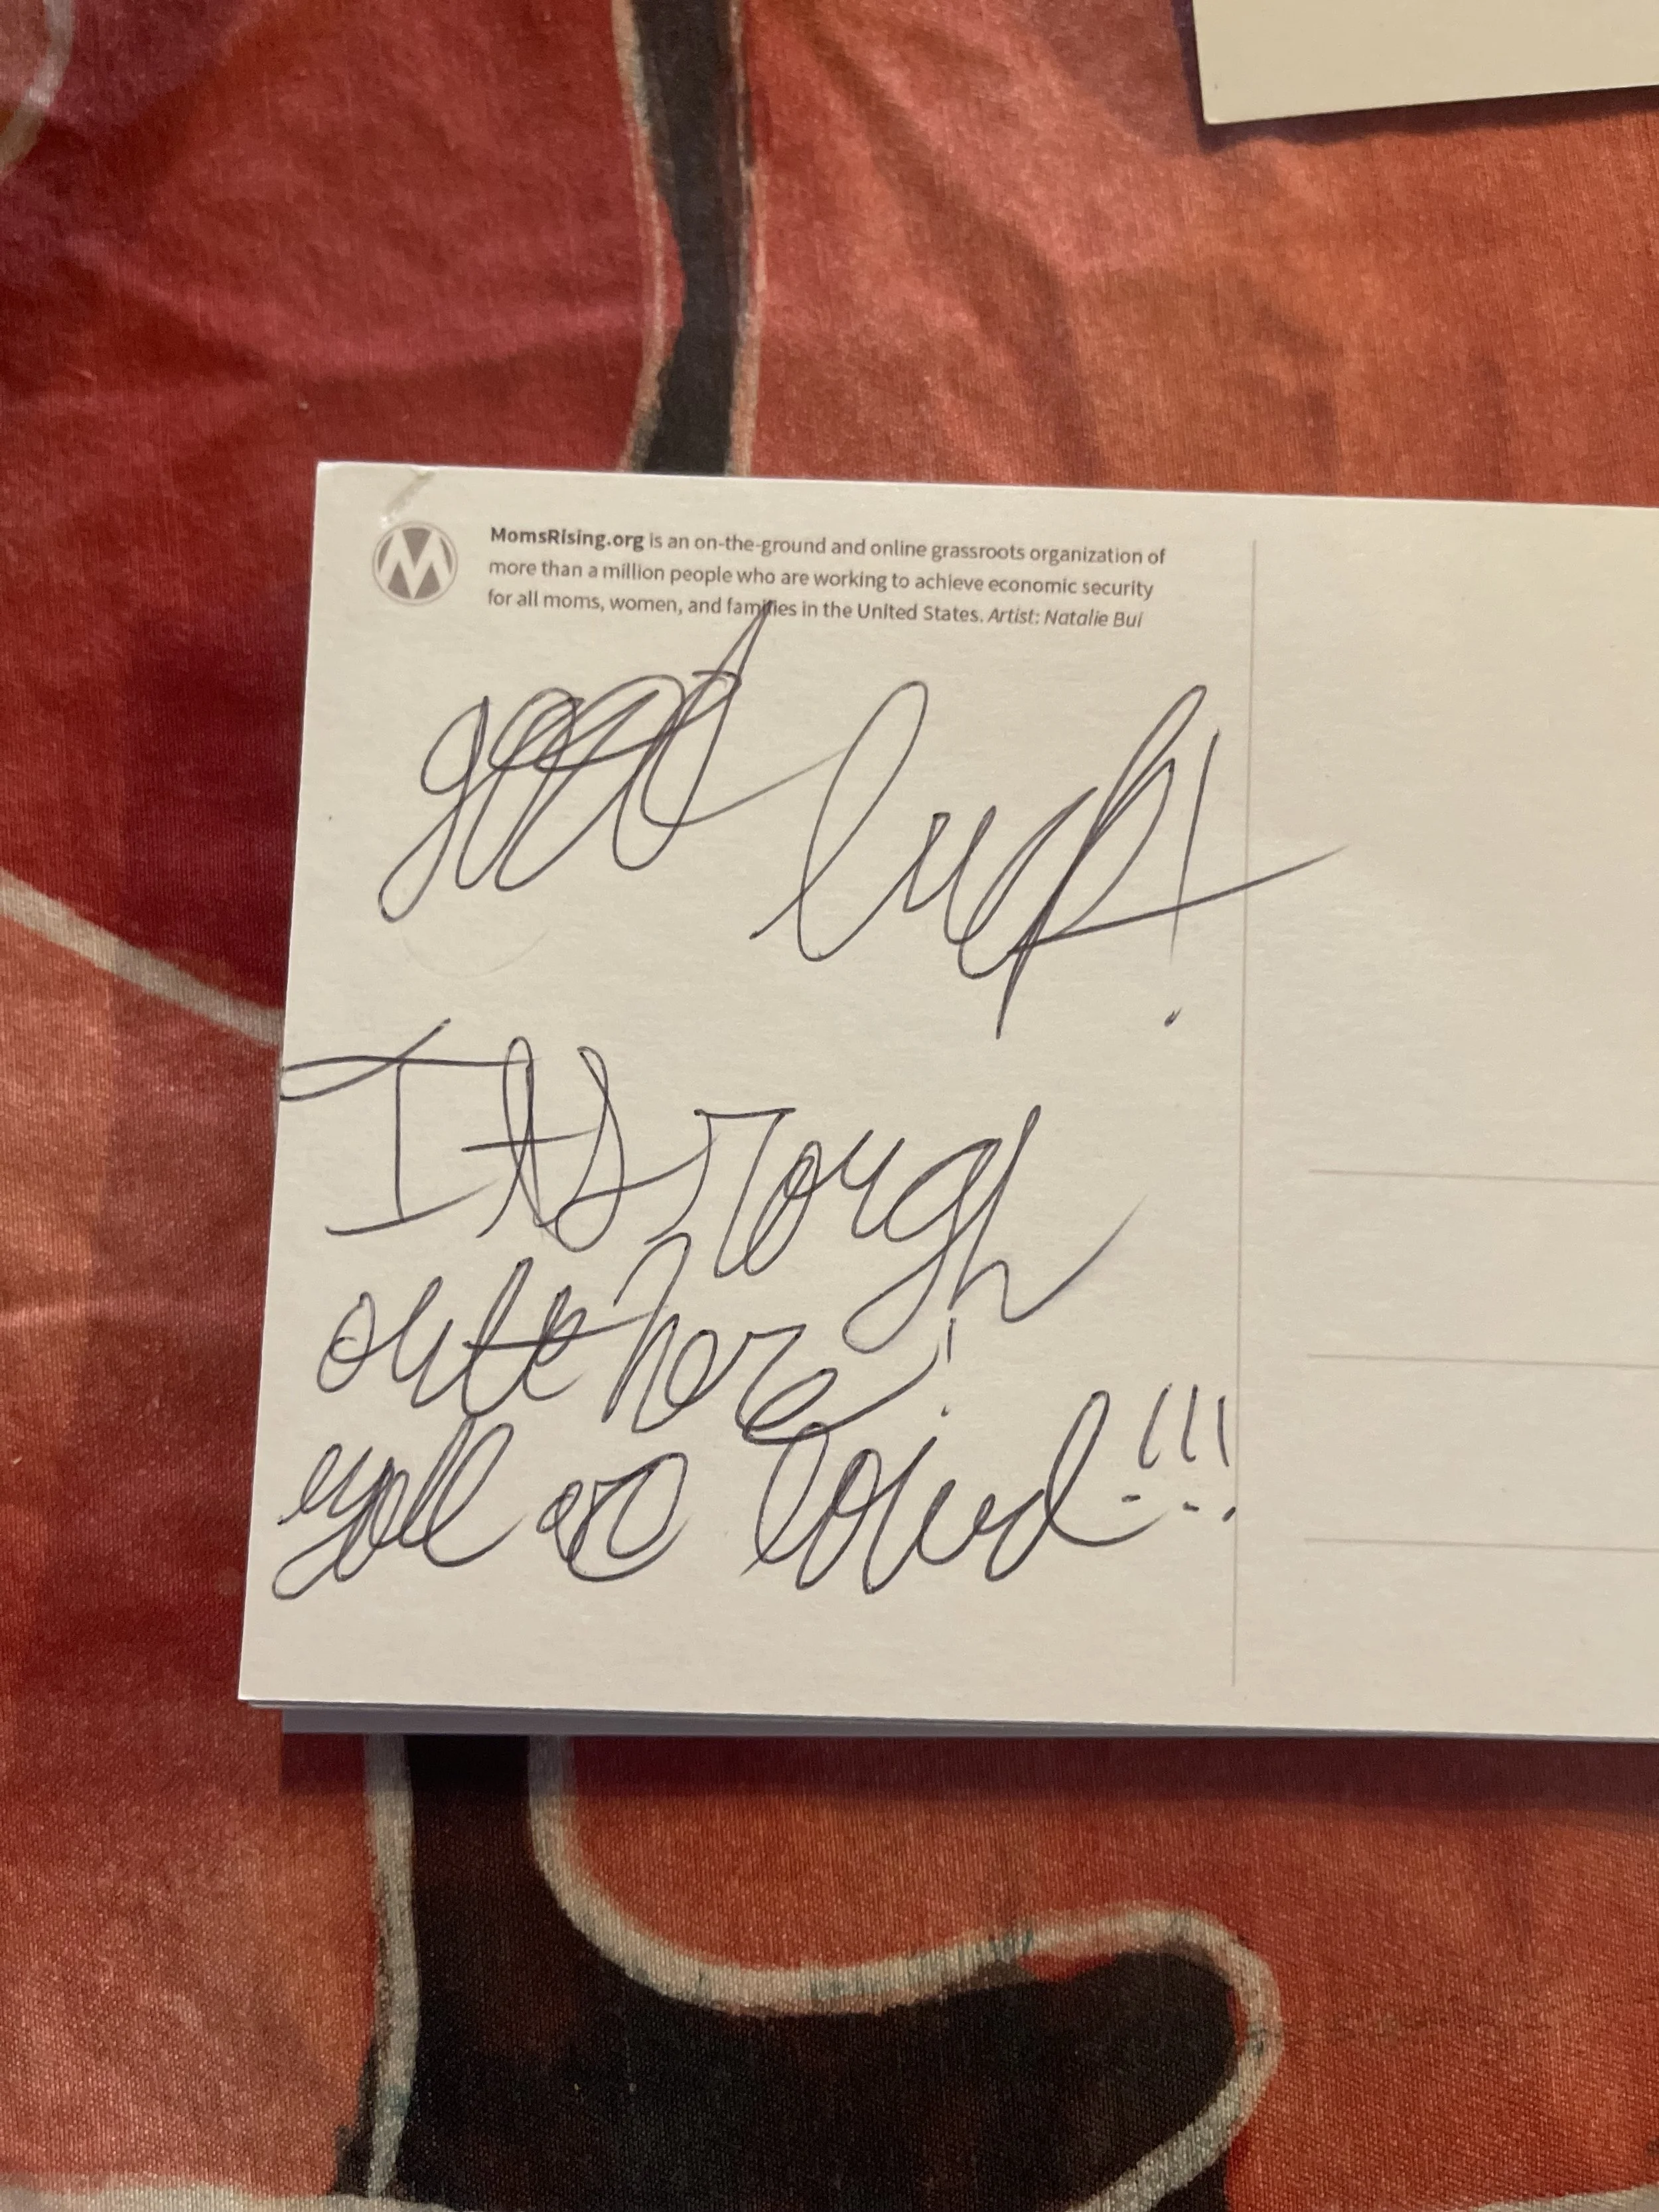 MomsRising.org is an on-the-ground and online grassroots organization of
more than a million people who are working to achieve economic security
for all moms, women, and families in the United States. Artist: Natalie Bui
good luck!
Its rough
out here!
yall are loved!!!